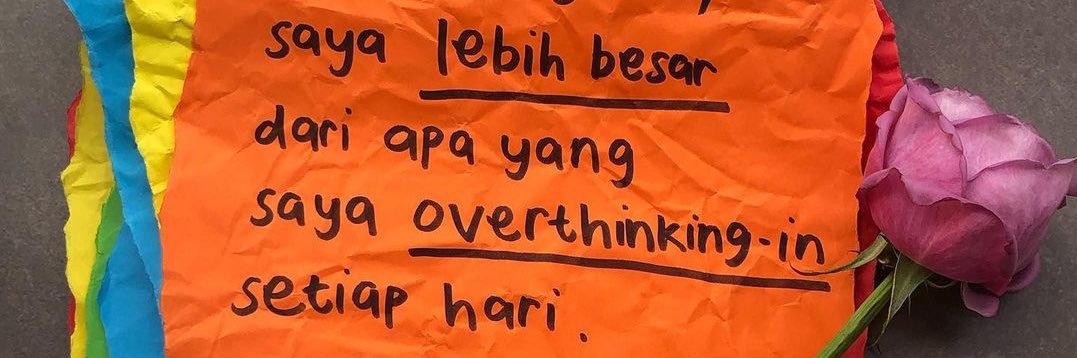 saya lebih besar
dari apa yang
saya overthinking-in
setiap hari.